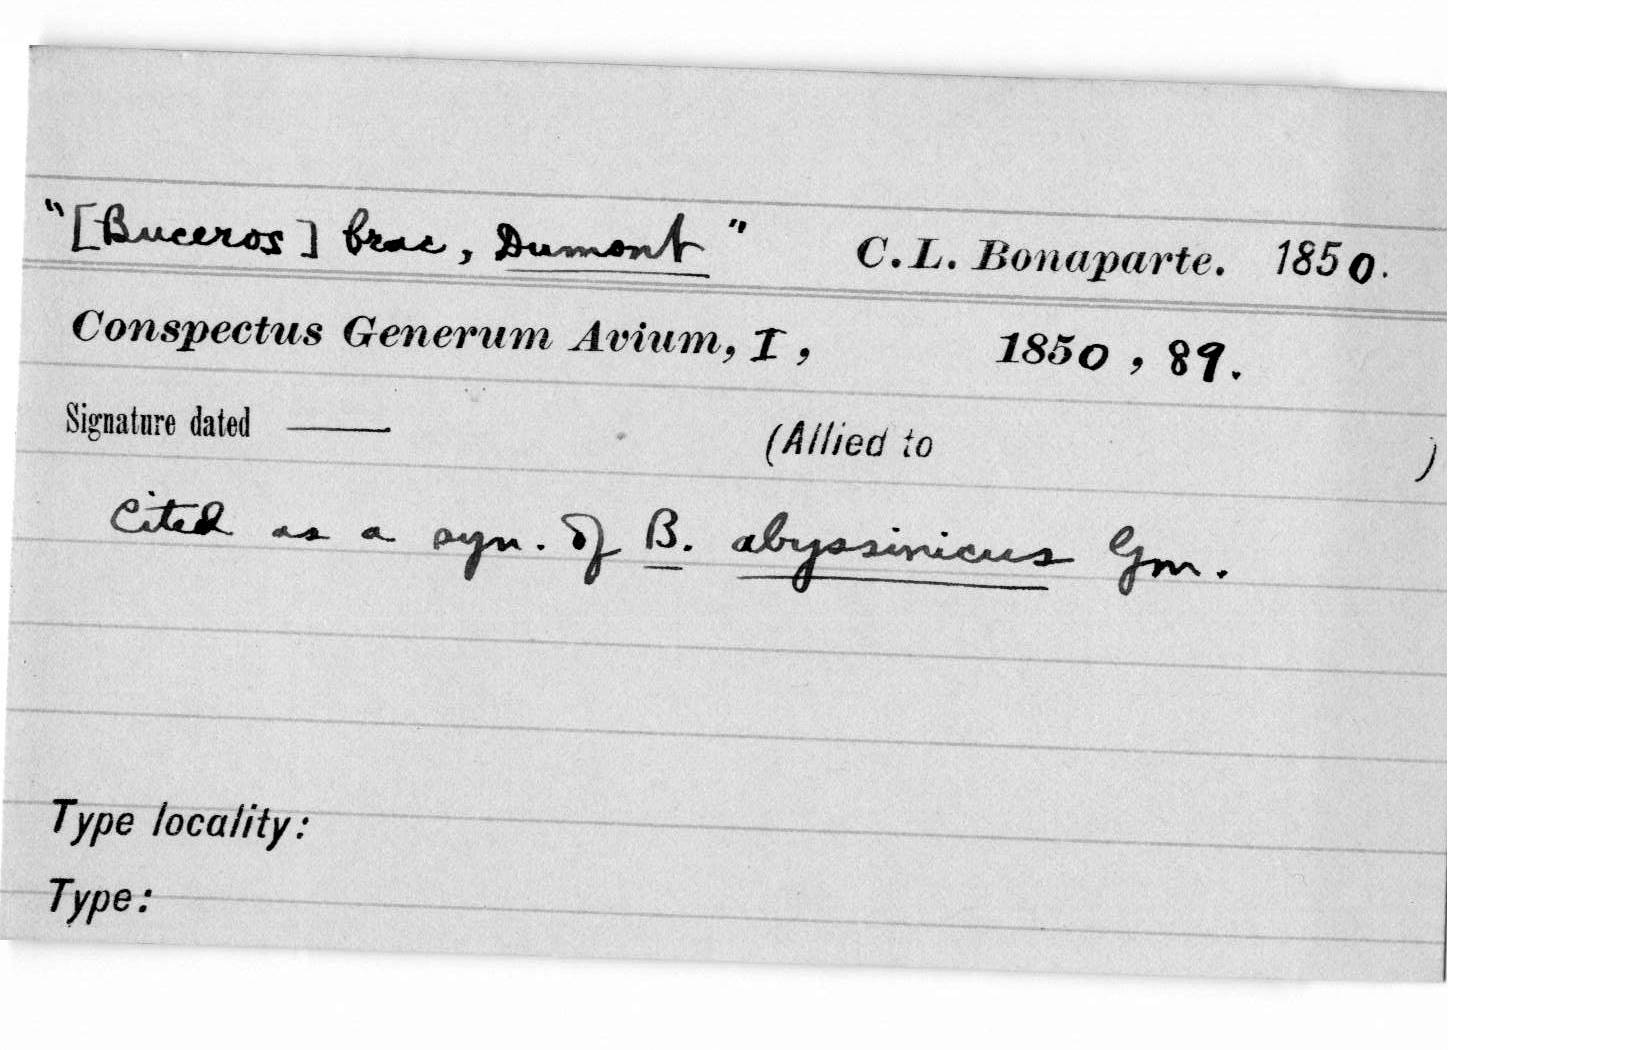 "[Buceros] brac, Dumont" C.L. Bonaparte. 1850.
Conspectus Generum Avium, I, 1850, 89.
Signature dated —— (Allied to )
Cited as a syn. of B. abyssinicus Gm.
Type locality:
Type: